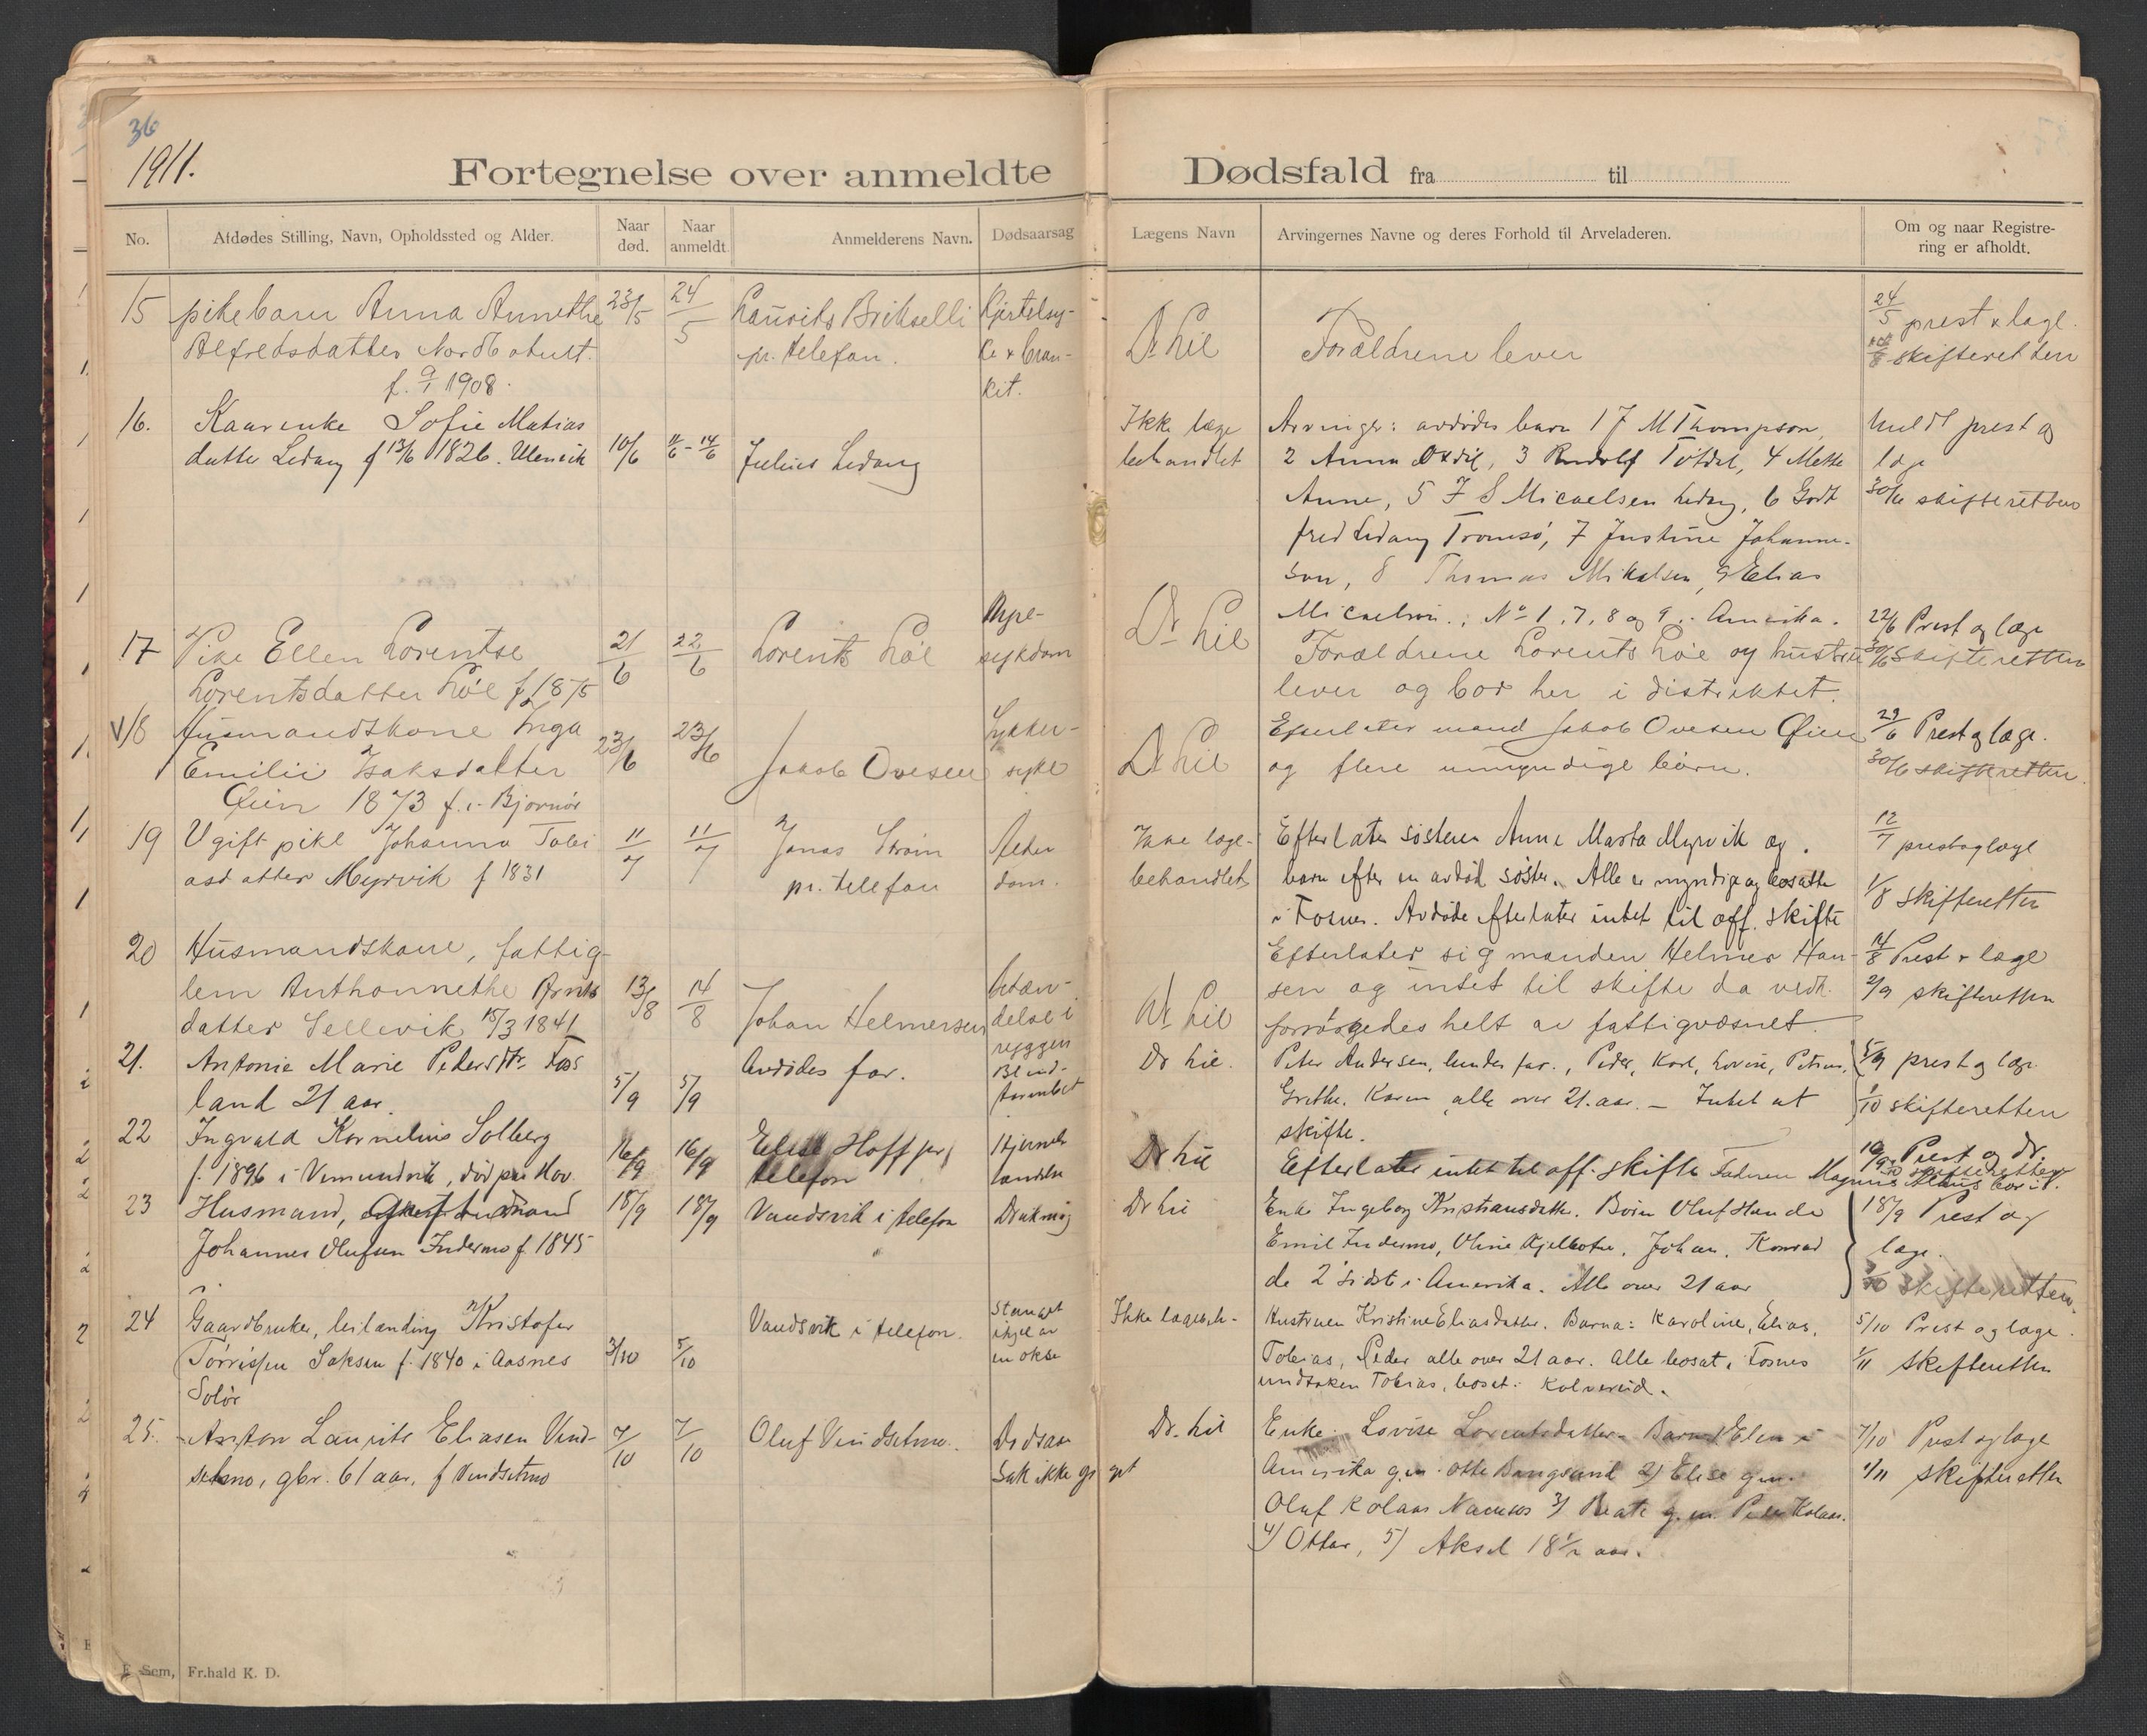 36
1911.
Fortegnelse over anmeldte Dødsfald fra til
No. Afdødes Stilling, Navn, Opholdssted og Alder. Naar død. Naar anmeldt. Anmelderens Navn. Dødsaarsag Lægens Navn Arvingernes Navne og deres Forhold til Arveladeren. Om og naar Registrering er afholdt.
15 pikebarn Anna Annethe 23/5 24/5 Laurits Brikselli Kjertelsy-
Alfredsdatter pr. telefon. ke & bron-
f. 9/1 1908. kit.
Dr Lie Forældrene lever
24/5 prest & læge.
skifteretten
16. Kaarenke Sofie Matias
datter Ledang f 13/6 1826. 10/6 11/6 - 14/6 Julius Ledang
Ikke læge
behandlet
Arvinger: avdødes barn 1 J M Thompson
2 Anna 3 Rudolf 4 Mette
Anne, 5 J S Micaelsen Ledang, 6 Godt
fred Ledang Tromsø, 7 Justine Johanne-
sen, 8 Thomas Mikalsen, 9 Elias
Micaelsen.; No 1, 7, 8 og 9 i Amerika.
meldt prest og
læge
30/6 skifteretten
17 Pike Ellen Lorentse 21/6 22/6 Lorents Løe
Lorentsdatter Løe f 1875 sykdom
Dr Lie
Forældrene Lorents Løe og hustru
lever og bor her i distriktet.
22/6 Prest og læge
30/6 skifteretten
18 Husmandskone Inga 23/6 23/6 Jakob Ovesen Sukker-
Emilie Isaksdatter syke
Øien 1873 f. i Bjørnør
Dr Lie
Efterlater mand Jakob Ovesen Øien
og flere umyndige børn.
Prest og læge.
30/6 skifteretten.
19 Ugift pike Johanna Tobi 11/7 11/7 Jonas Strøm Alder
asdatter Myrvik f 1831 pr. telefon dom.
Ikke læge-
behandlet
Efterlater søsteren Anne Marta Myrvik og
barn efter en avdød søster. Alle er myndige og bosatte
i Fosnes. Avdøde efterlater intet til off. skifte
12/7 prest og læge
1/8 skifteretten
20 Husmandskone, fattig-
lem Anthonnethe Arnts 13/8 14/8 Johan Helmersen betæn-
datter Sellevik 15/3 1841 delse i
ryggen
Dr Lie
Efterlater sig manden Helmer Han-
sen og intet til skifte da vedk.
forsørgedes helt av fattigvæsnet.
14/8 Prest & læge
2/9 skifteretten
21. Antonie Marie Pedersdtr. Fos 5/9 5/9 Avdødes far. Blind-
land 21 aar. tarmbet
Dr Lie.
Peter Andersen, hendes far., Peder, Karl, Lovise, Petrine,
Grethe, Karen alle over 21. aar. – Intet at
skifte.
5/9 prest og læge
1/10 skifteretten
22 Ingvald Kornelius Solberg 16/9 16/9 Elise Hoff pr
f. 1896 i Vemundvik, død paa Hov. telefon
Dr Lie
Efterlater intet til off. skifte Faderen Magnus
16/9 Prest og dr.
23 Husmand, 18/9 18/9 Vandsvik i telefon
Johannes Olufsen Indermo f. 1845
Dr Lie
Enke Ingeborg Kristiansdatter. Børn Oluf
Emil Indermo, Oline Johan, Konrad
de 2 sidste i Amerika. Alle over 21 aar
18/9 Prest og
læge.
skifteretten.
24 Gaardbruker, leilænding Kristofer 3/10 5/10 Vandsvik i telefon. Stanget
Tørrissen Saksen f. 1840 i Aasnes ihjel av
Solør en okse
Ikke lægebeh-
Hustruen Kristine Eliasdatter. Barna: Karoline, Elias,
Tobias, Peder alle over 21 aar. Alle bosat i Fosnes
undtaken Tobias, bosat i Kolvereid.
5/10 Prest og læge.
1/11 skifteretten
25. Anton Laurits Eliasen Vind- 7/10 7/10 Oluf Vindsetmo. Dødsaar
setmo, gbr. 61 aar, f Vindsetmo sak ikke opgit
Dr. Lie
Enke: Lovise Lorentsdatter. Barn 1/ Elen i
Amerika g.m. Otto Bangsund 2/ Elise g.m.
Oluf Kolaas Namsos 3/ Beate g.m. Peder Kolaas.
4/ Ottar, 5/ Aksel 18 1/2 aar.
7/10 Prest og læge
1/11 skifteretten
E Sem, Fr.hald K. D.